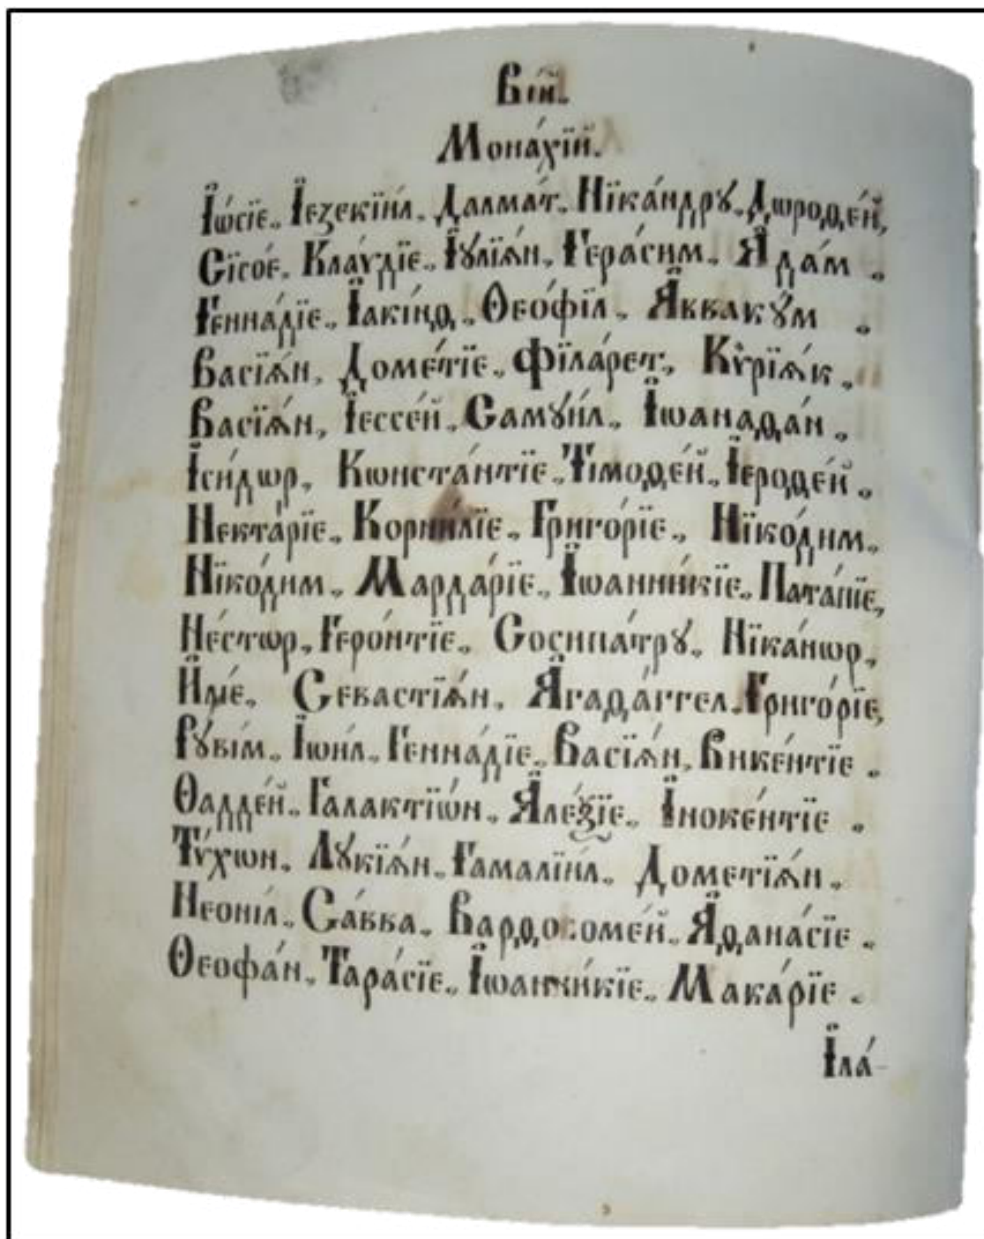 Вїй.
Мона́хїй.
І҆ѡ́сїе. І҆езекїи́л. Далма́т. Нїка́ндрꙋ. Дѡроѳе́й,
Сїсо́е. Кла́ѵдїе. І҆ꙋлїѧ́н. Гера́сим. А҆да́м.
Генна́дїе. І҆акі́нѳ. Ѳео́фїл. А҆ввакꙋ́м.
Васїѧ́н. Доме́тїе. Фїла́рет. Кѷрїѧ́к.
Васїѧ́н. І҆ессе́й. Самꙋи́л. І҆ѡанаѳа́н.
І҆си́дѡр. Кѡнста́нтїе. Тїмоѳе́й. І҆ероѳе́й.
Некта́рїе. Корни́лїе. Григо́рїе. Нїко́дим.
Нїко́дим. Марда́рїе. І҆ѡанни́кїе. Пата́пїе,
Не́стѡр. Геро́нтїе. Сосипа́трꙋ. Нїка́нѡр.
И҆ме́. Севастїѧ́н. А҆гаѳа́ггел. Григо́рїе,
Рꙋві́м. І҆ѡи́л. Генна́дїе. Васїѧ́н. Вике́нтїе.
Ѳадде́й. Галактїѡ́н. А҆ле́ѯїе. І҆ноке́нтїе.
Тѵ́хѡн. Лꙋкїѧ́н. Гамалїи́л. Дометїѧ́н.
Неоні́л. Са́вва. Варѳоломе́й. А҆ѳана́сїе.
Ѳеофа́н. Тара́сїе. І҆ѡанни́кїе. Мака́рїе.
І҆ла́-